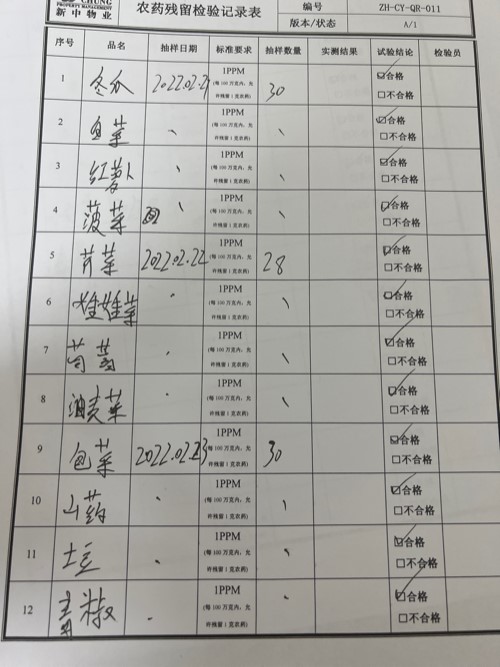 CHUNG
PROPERTY MANAGEMENT
新中物业
农药残留检验记录表
编号 ZH-CY-QR-011
版本/状态 A/1
序号 品名 抽样日期 标准要求 抽样数量 实测结果 试验结论 检验员
1 冬瓜 2022.02.21 1PPM 30 ☑合格
(每 100 万克内,允许残留 1 克农药) □不合格
2 白菜 、 1PPM 、 ☑合格
(每 100 万克内,允许残留 1 克农药) □不合格
3 红萝卜 、 1PPM 、 ☑合格
(每 100 万克内,允许残留 1 克农药) □不合格
4 菠菜 、 1PPM 、 ☑合格
(每 100 万克内,允许残留 1 克农药) □不合格
5 芹菜 2022.02.22 1PPM 28 ☑合格
(每 100 万克内,允许残留 1 克农药) □不合格
6 娃娃菜 、 1PPM 、 ☑合格
(每 100 万克内,允许残留 1 克农药) □不合格
7 茼蒿 、 1PPM 、 ☑合格
(每 100 万克内,允许残留 1 克农药) □不合格
8 油麦菜 、 1PPM 、 ☑合格
(每 100 万克内,允许残留 1 克农药) □不合格
9 包菜 2022.02.23 1PPM 30 ☑合格
(每 100 万克内,允许残留 1 克农药) □不合格
10 山药 、 1PPM 、 ☑合格
(每 100 万克内,允许残留 1 克农药) □不合格
11 土豆 、 1PPM 、 ☑合格
(每 100 万克内,允许残留 1 克农药) □不合格
12 青椒 、 1PPM 、 ☑合格
(每 100 万克内,允许残留 1 克农药) □不合格